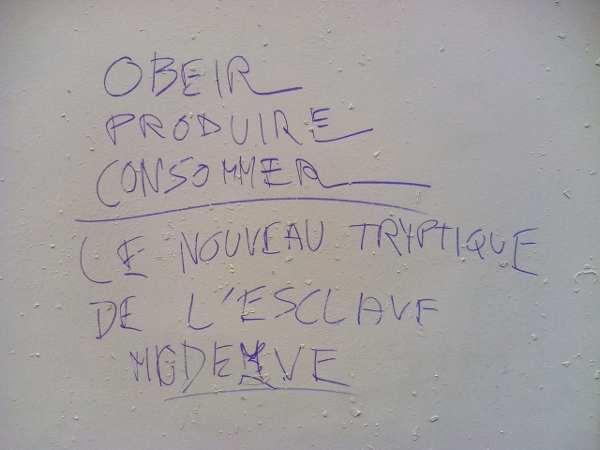 OBEIR
PRODUIRE
CONSOMMER
LE NOUVEAU TRYPTIQUE
DE L'ESCLAVE